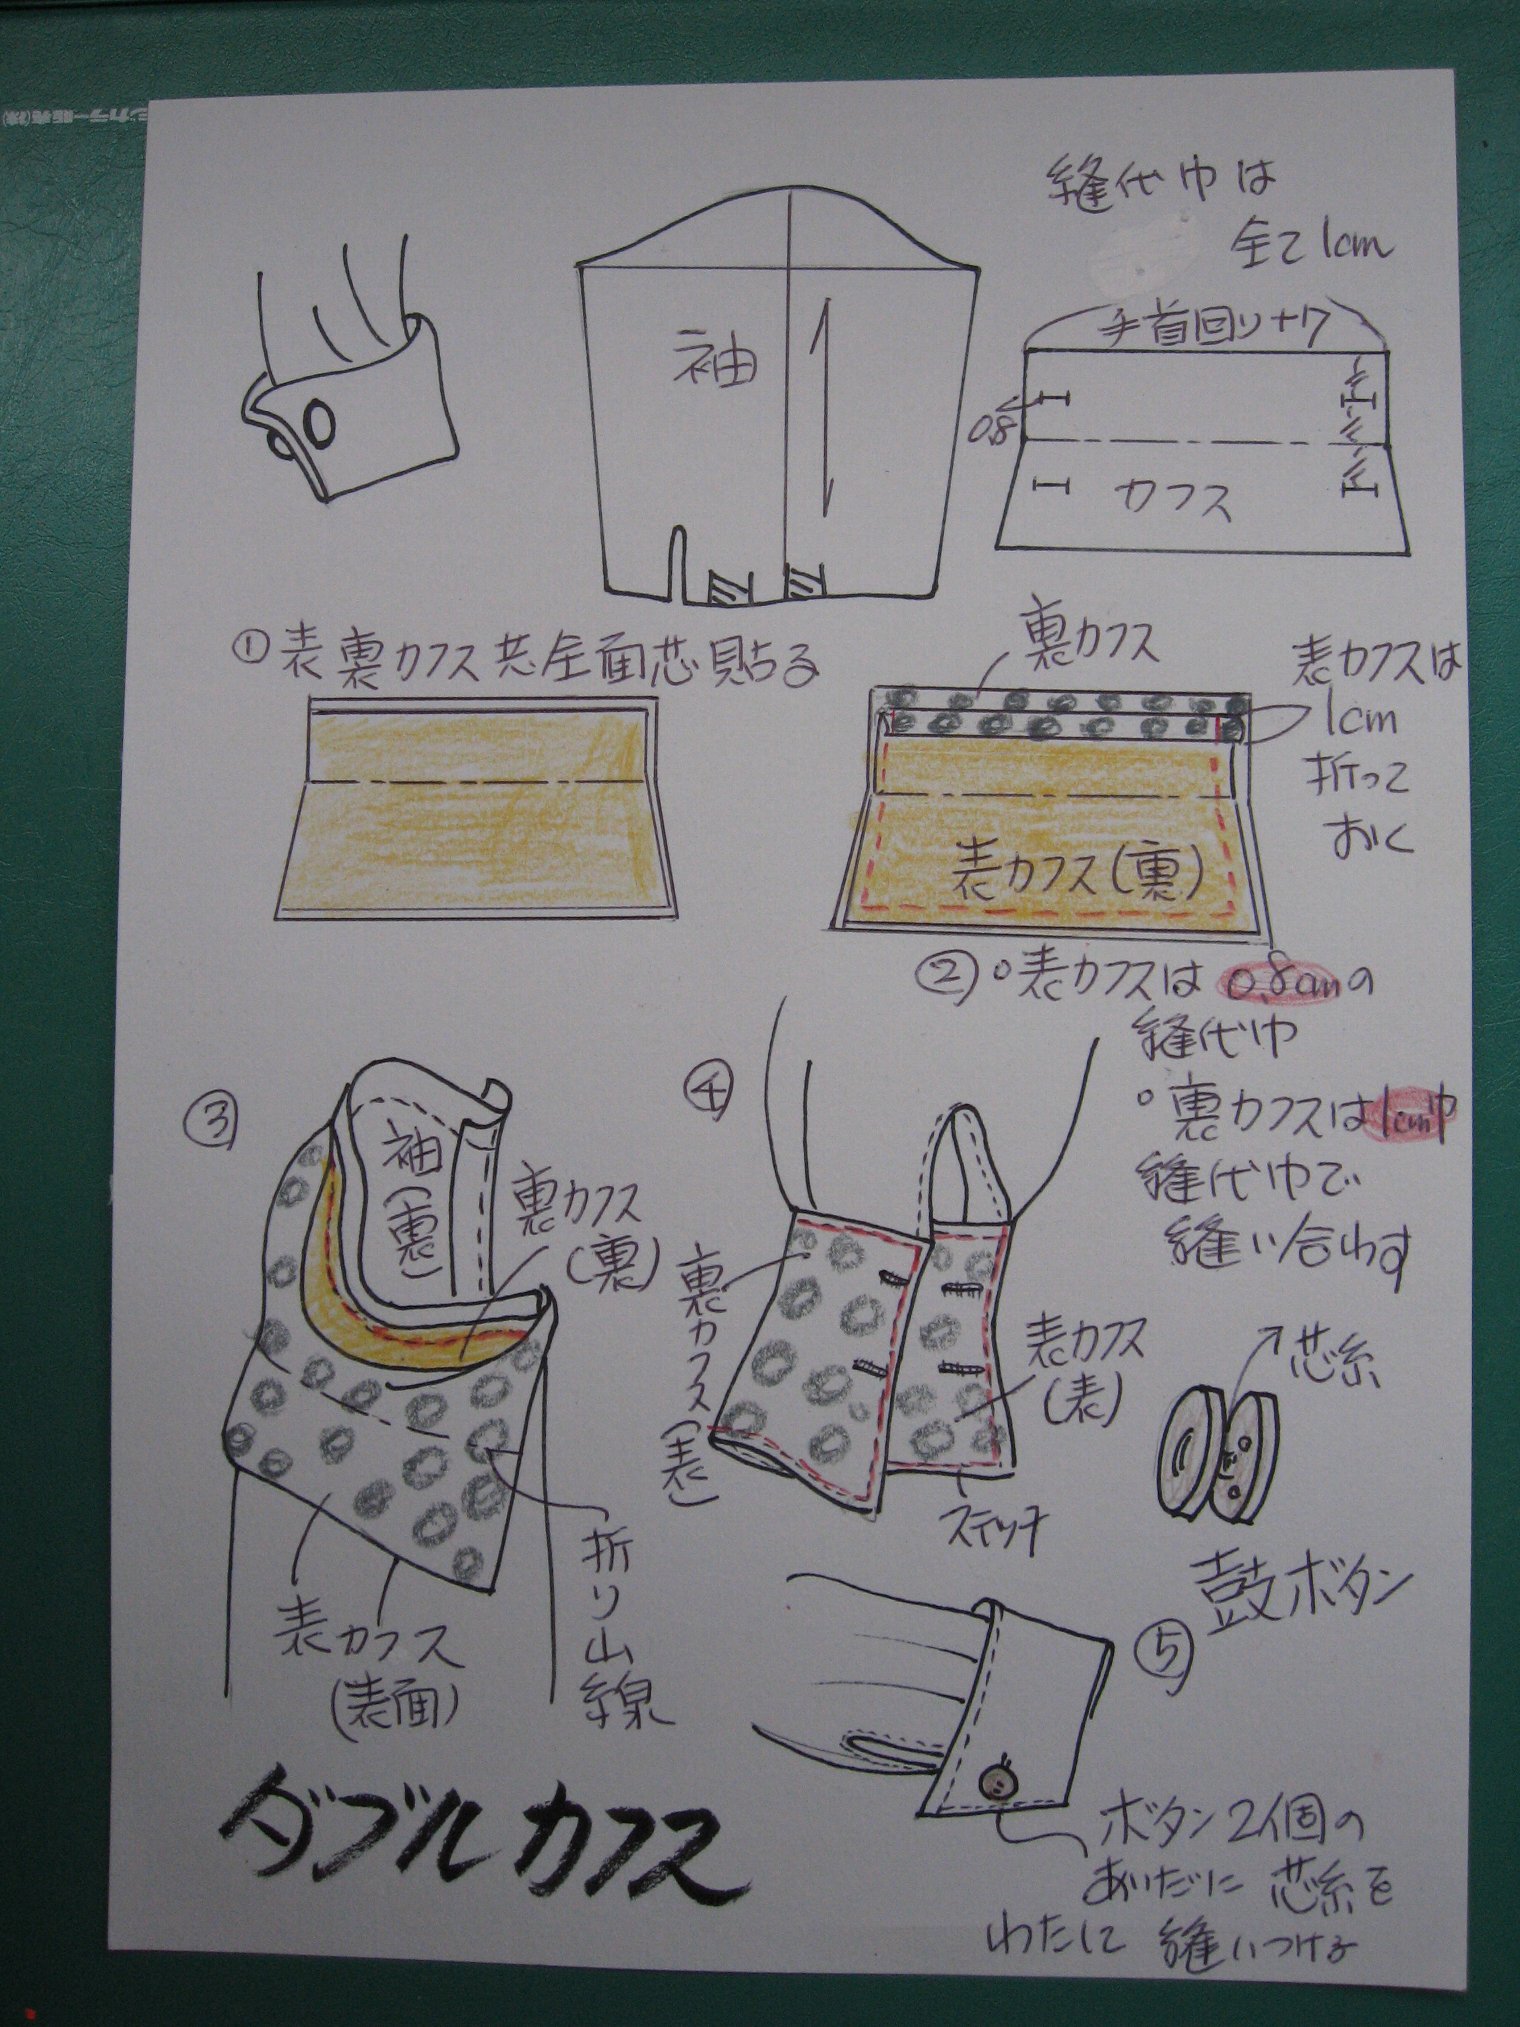 縫代巾は
全て1cm
手首回り+7
0.8
袖
カフス
①表裏カフス共全面芯貼る
裏カフス
表カフスは
1cm
折って
おく
表カフス(裏)
②○表カフスは0.8cmの
縫代巾
○裏カフスは1cm巾
縫代巾で
縫い合わす
③
袖(裏)
裏カフス
(裏)
表カフス
(表面)
折り山線
④
裏カフス(表)
表カフス
(表)
ステッチ
芯糸
鼓ボタン
⑤
ボタン2個の
あいだに 芯糸を
わたして 縫いつける
ダブルカフス